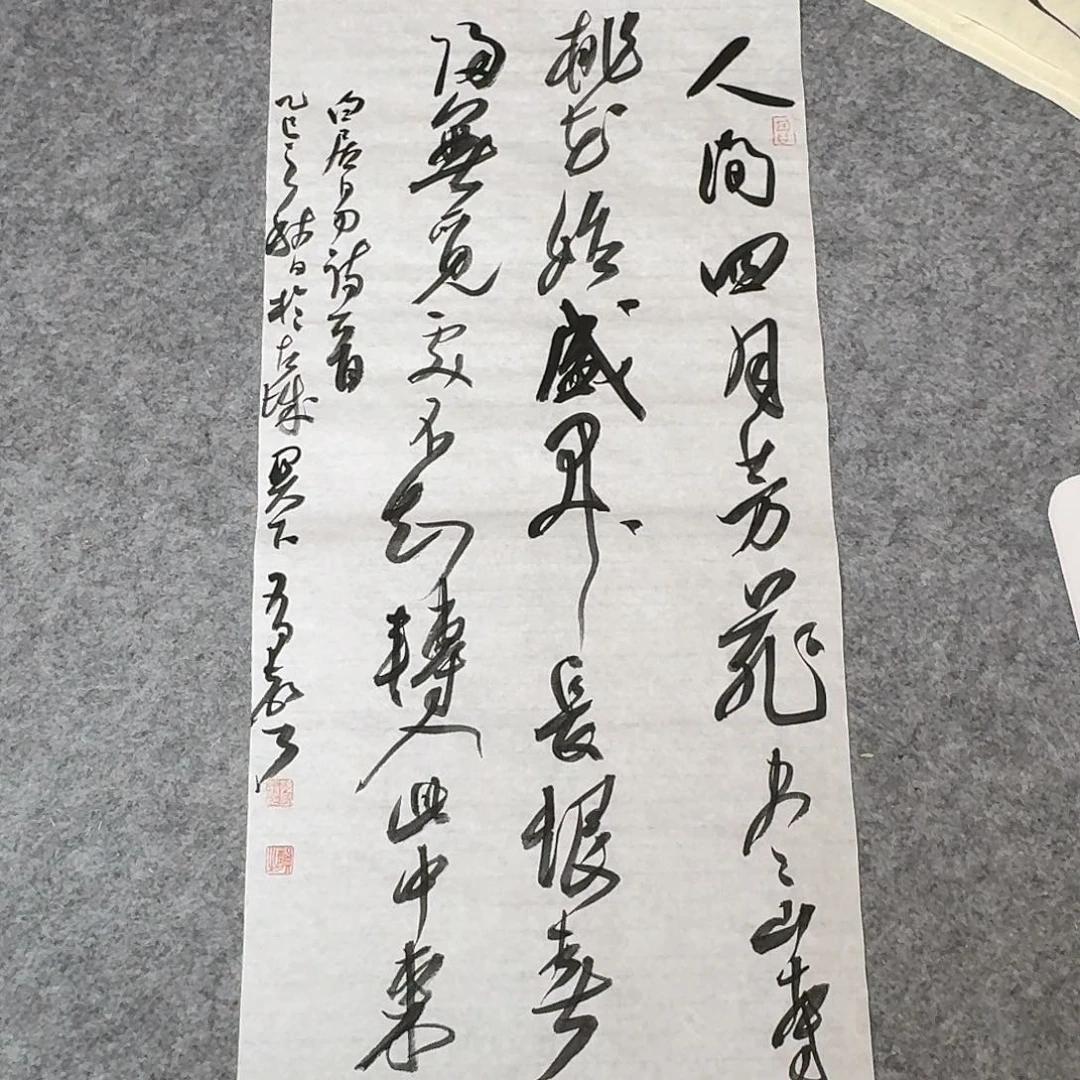 人間四月芳菲尽山寺
桃花始盛開長恨春
歸無覓處不知轉入此中來
白居易詩一首
乙巳之秋日於古城吴下